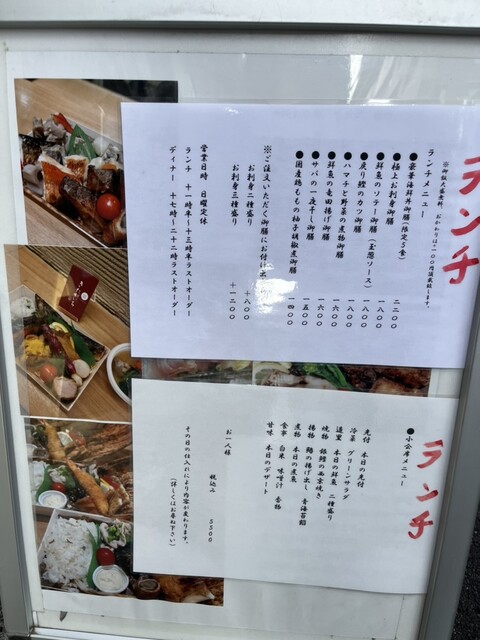 ランチ
※御飯大盛無料、おかわりは一〇〇円頂戴致します。
ランチメニュー
●豪華海鮮丼御膳(限定5食)
●極上お刺身御膳 二二〇〇
●鮮魚のソテー御膳(玉葱ソース) 一八〇〇
●炙り鰹のカツ御膳 一八〇〇
●ハマチと野菜の煮物御膳 一八〇〇
●鮮魚の竜田揚げ御膳 一六〇〇
●サバの一夜干し御膳 一五〇〇
●国産鶏ももの柚子胡椒煮御膳 一四〇〇
※ご注文いただく御膳にお付け出
お刺身二種盛り 十八〇〇
お刺身三種盛り 十一二〇〇
営業日時 日曜定休
ランチ 十一時半〜十三時半ラストオーダー
ディナー 十七時〜二十二時ラストオーダー
ランチ
●小会席メニュー
先付 本日の先付
冷菜 グリーンサラダ
造里 本日の鮮魚 二種盛り
焼物 銀鱈の西京焼き
揚物 鶏の揚げ出し 青海苔餡
煮物 本日の煮魚
食事 白米 味噌汁 香物
甘味 本日のデザート
お一人様 税込み 5500
その日の仕入れにより内容が変わります。
(詳しくはお尋ね下さい)